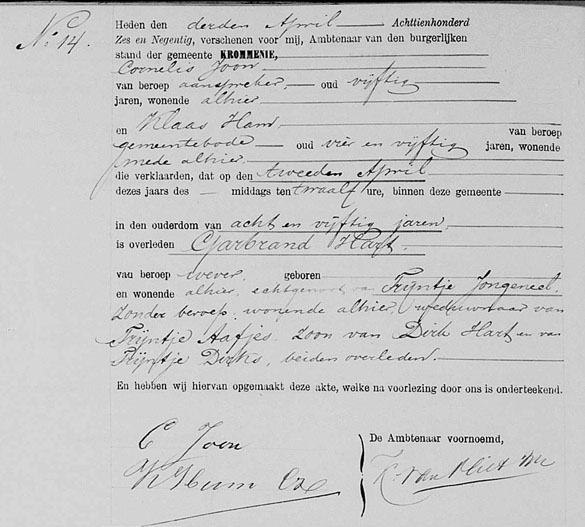 No. 14.
Heden den derden April Achttienhonderd
Zes en Negentig, verschenen voor mij, Ambtenaar van den burgerlijken
stand der gemeente KROMMENIE,
Cornelis Joon
van beroep aanspreker, oud vijftig
jaren, wonende alhier
en Klaas Ham van beroep
gemeentebode oud vier en vijftig jaren, wonende
mede alhier
die verklaarden, dat op den tweeden April
dezes jaars des middags ten twaalf ure, binnen deze gemeente
in den ouderdom van acht en vijftig jaren,
is overleden Garbrand Hart.
van beroep wever, geboren
en wonende alhier, echtgenoot van Trijntje Jongeneel,
zonder beroep, wonende alhier, weduwnaar van
Trijntje Aafjes, zoon van Dirk Hart en van
Trijntje Dirks, beiden overleden.
En hebben wij hiervan opgemaakt deze akte, welke na voorlezing door ons is onderteekend.
C Joon
De Ambtenaar voornoemd,
K Ham
van Vliet